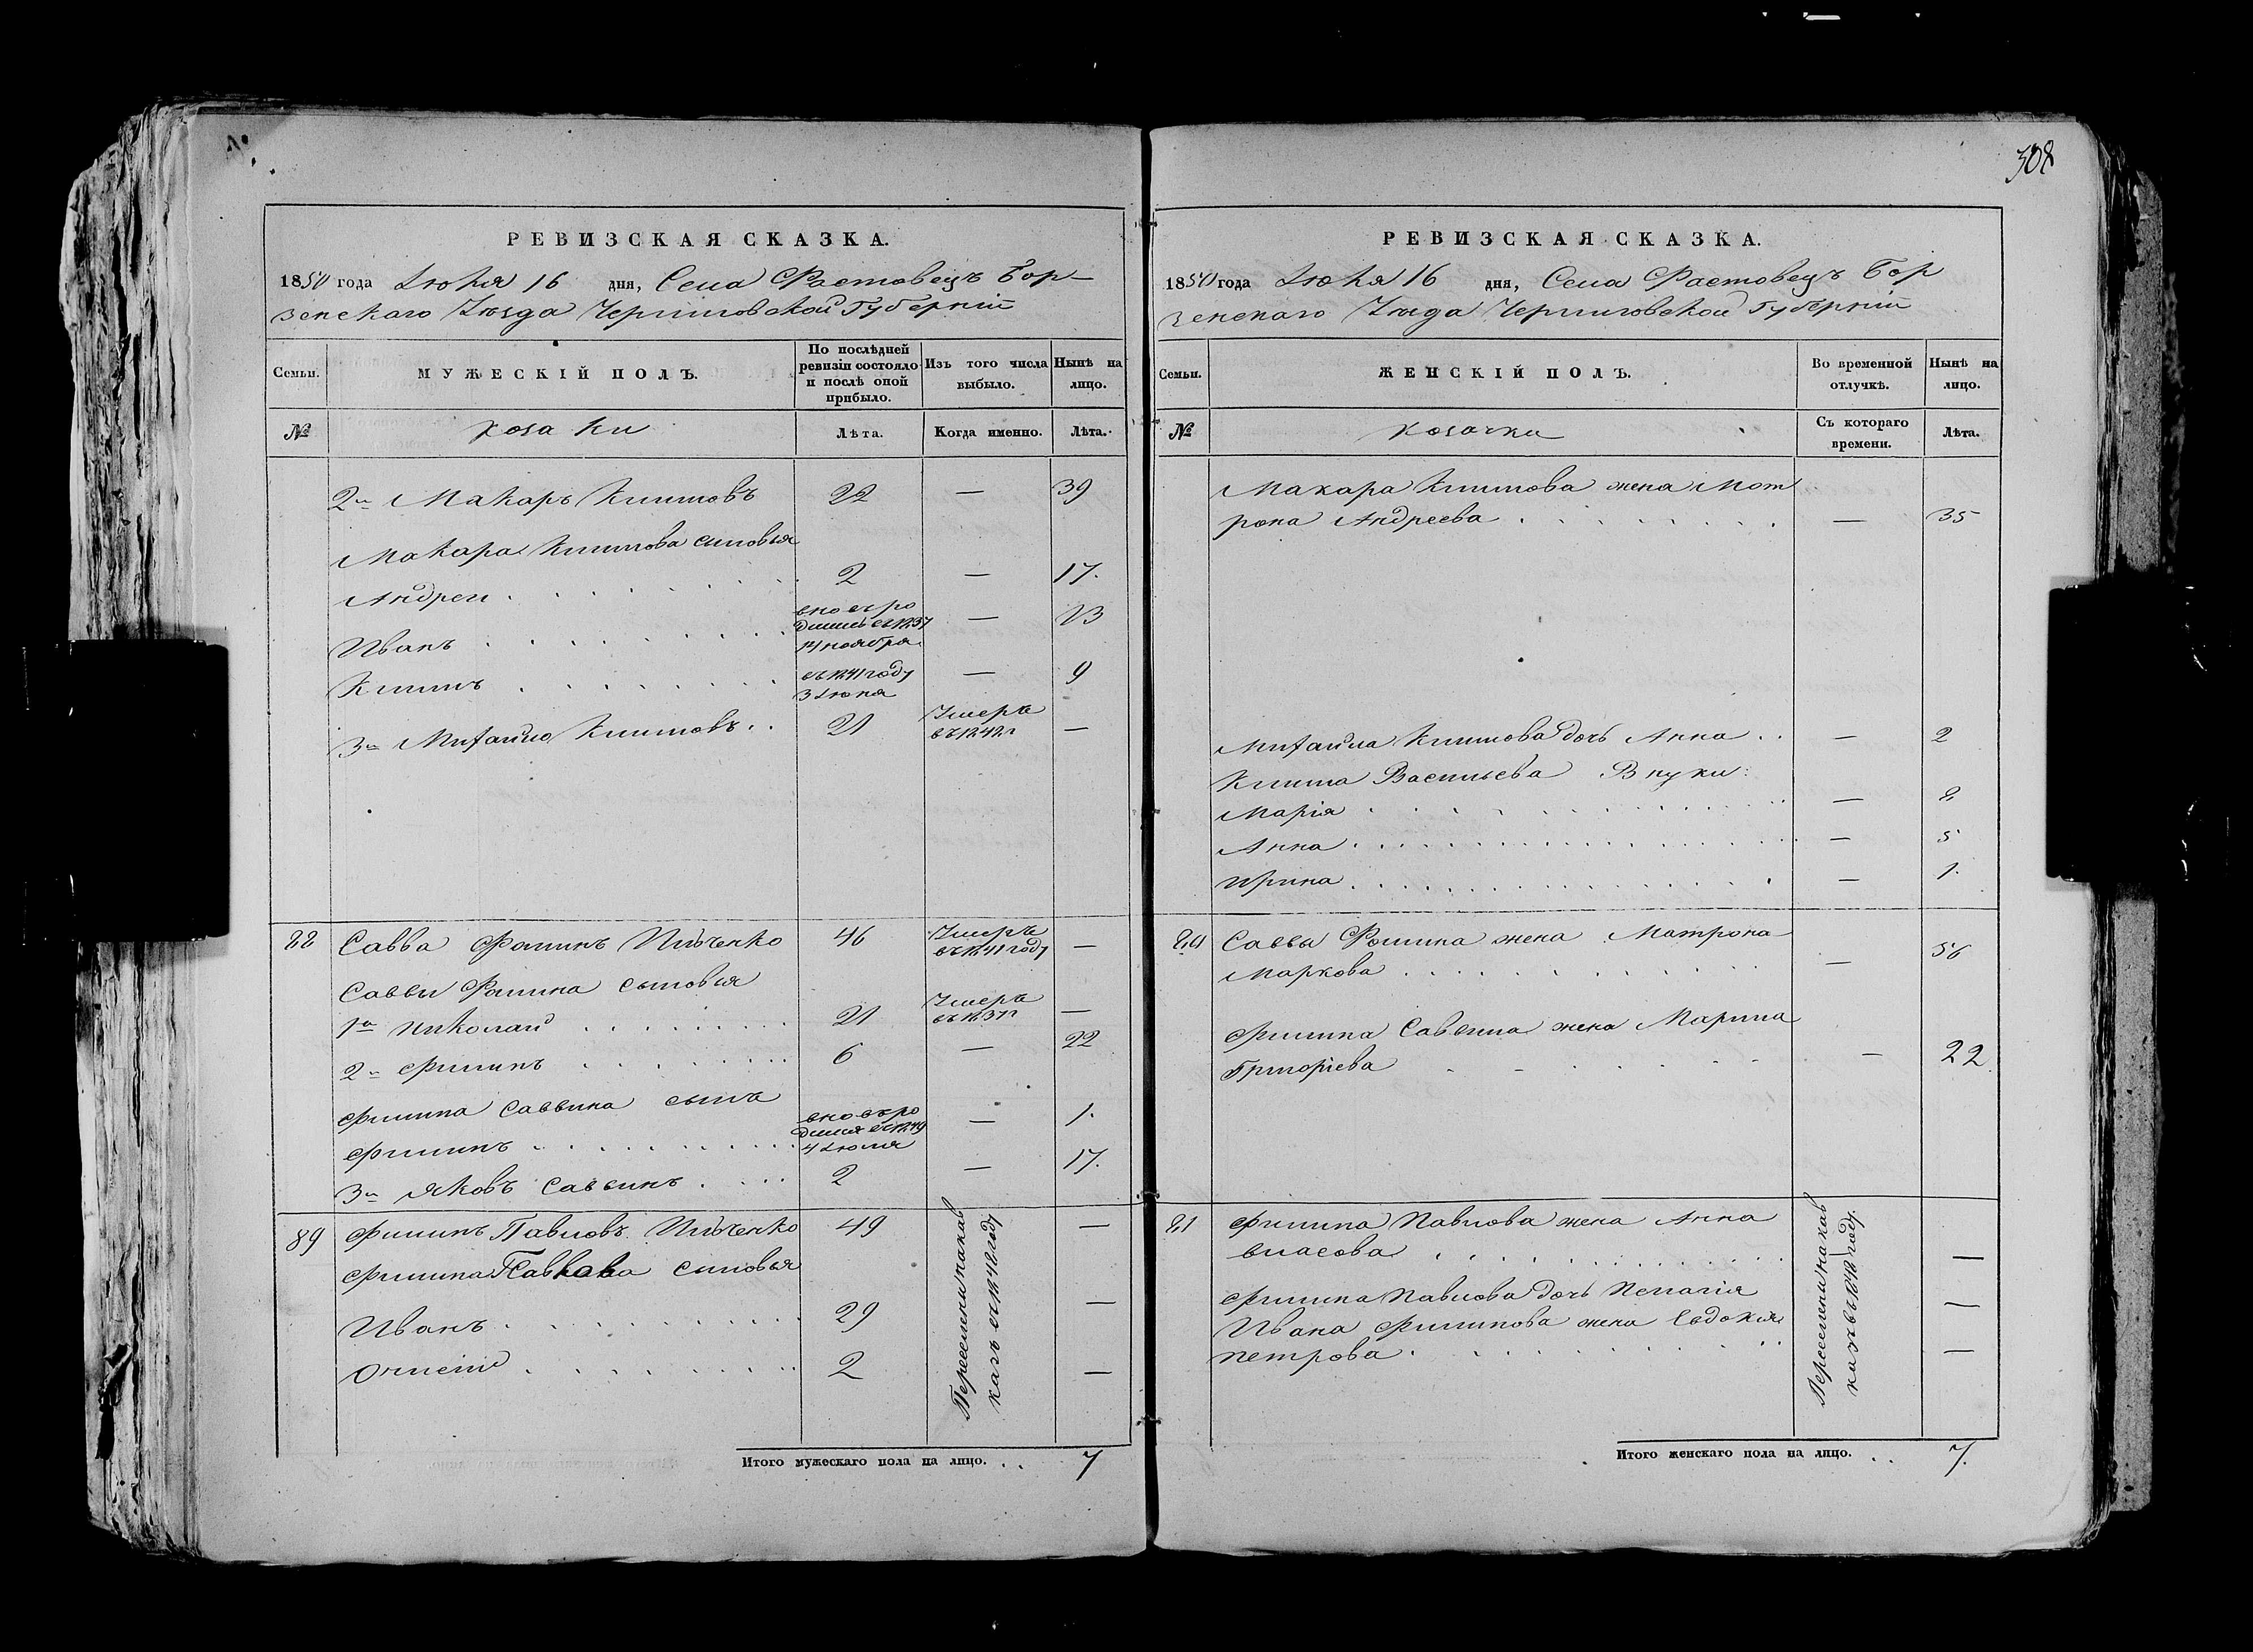 308
РЕВИЗСКАЯ СКАЗКА.
1850 года Іюня 16 дня, Села Фастовецъ Бор-
зенскаго Уѣзда Черниговской Губерніи
Семьи.
МУЖЕСКІЙ ПОЛЪ.
По послѣдней ревизіи состояло и послѣ оной прибыло.
Изъ того числа выбыло.
Нынѣ на лицо.
№
козаки
Лѣта.
Когда именно.
Лѣта.
2й Макаръ Климовъ 22 — 39
Макара Климова сыновья
Андрей 2 — 17.
Иванъ вновь ро
дились въ 1837
14 ноября — 13
Климъ въ 1841 году
3 Іюня — 9
3й Михайло Климовъ 21 Умеръ
въ 1842 г —
88 Савва Фоминъ 46 Умеръ
въ 1841 году —
Саввы Фомина сыновья
1й Николай 21 Умеръ
въ 1837г —
2й Филипъ 6 — 22
Филипа Саввина сынъ
Филипъ вновь ро
дился въ 1849
4 Іюля — 1.
3й Яковъ Саввинъ 2 — 17.
89 Филипъ Павловъ 49 —
Филипа Павлова сыновья
Иванъ 29 —
2 —
Переселены на кав
казъ въ 1848 году
Итого мужескаго пола на лицо. 7
РЕВИЗСКАЯ СКАЗКА.
1850 года Іюня 16 дня, Села Фастовецъ Бор
зенскаго Уѣзда Черниговской Губерніи
Семьи.
ЖЕНСКІЙ ПОЛЪ.
Во временной отлучкѣ.
Нынѣ на лицо.
№
козачки
Съ котораго времени.
Лѣта.
Макара Климова жена Мот
рона Андреева — 35
Михайла Климова дочь Анна — 2
Клима Васильева Внуки:
Марія — 8
Анна — 5
Ирина — 1.
Саввы Фомина жена Матрона
Маркова — 56
Филипа Саввина жена Марина
Григоріева — 22
Филипа Павлова жена Анна
Власова —
Филипа Павлова дочь Пелагія —
Ивана Филипова жена Евдокія
Петрова —
Переселены на кав
казъ въ 1848 году.
Итого женскаго пола на лицо. 7.